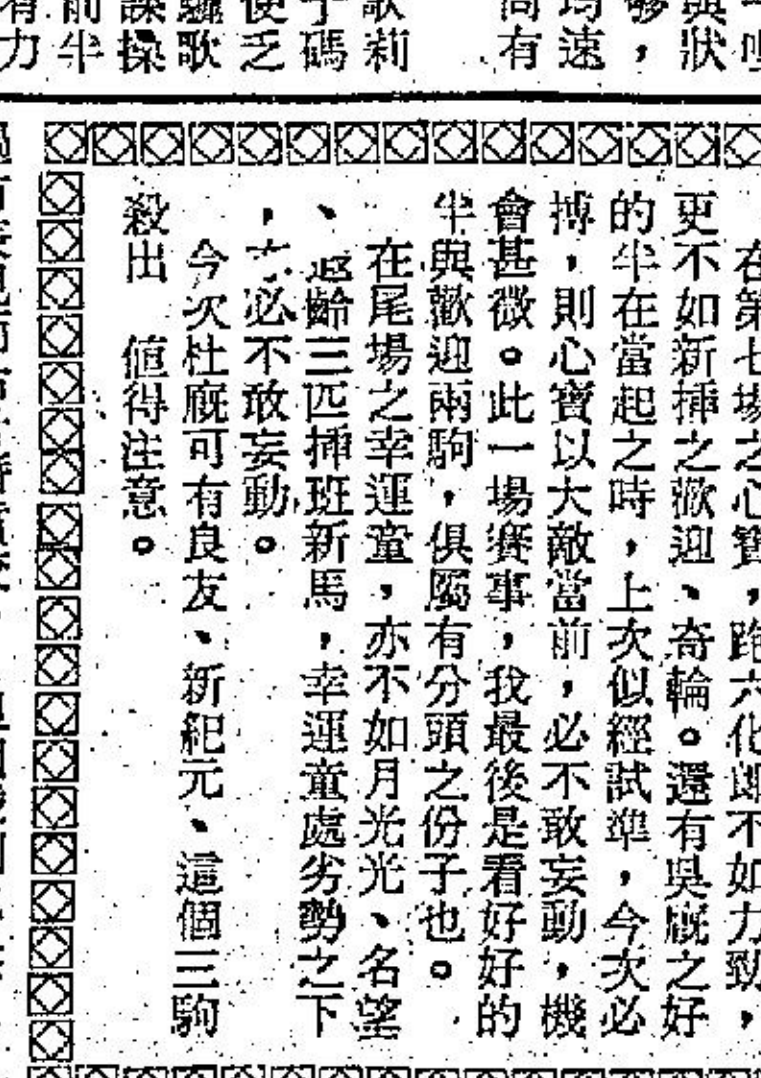 與狀
夠，
均速
尚有
歌莉
于碼
便乏
驪歌
謀操
前半
有力
在第七場之心寶，跑六化郎不如力勁，
更不如新揷之歡迎、奇輪。還有吳廐之好
的半在當起之時，上次似經試準，今次必
搏，則心寶以大敵當前，必不敢妄動，機
會甚微。此一場賽事，我最後是看好好的
半與歡迎兩駒，俱屬有分頭之份子也。
在尾場之幸運童，亦不如月光光、名望
、超齡三匹揷班新馬，幸運童處劣勢之下
，亦必不敢妄動。
今次杜廐可有良友、新紀元、這個三駒
殺出 值得注意。